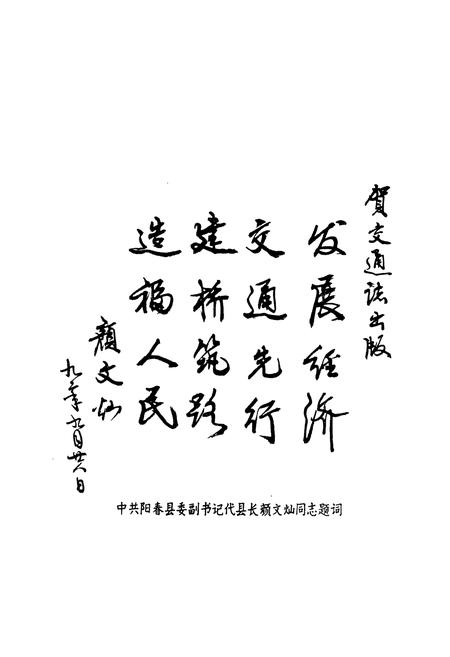 贺交通志出版
发展经济
交通先行
建桥筑路
造福人民
颜文灿
九〇年九月廿六日
中共阳春县委副书记代县长颜文灿同志题词